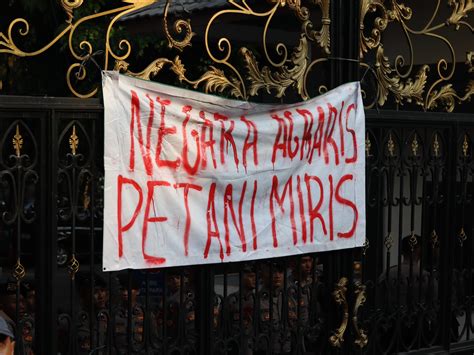 NEGARA AGRARIS
PETANI MIRIS